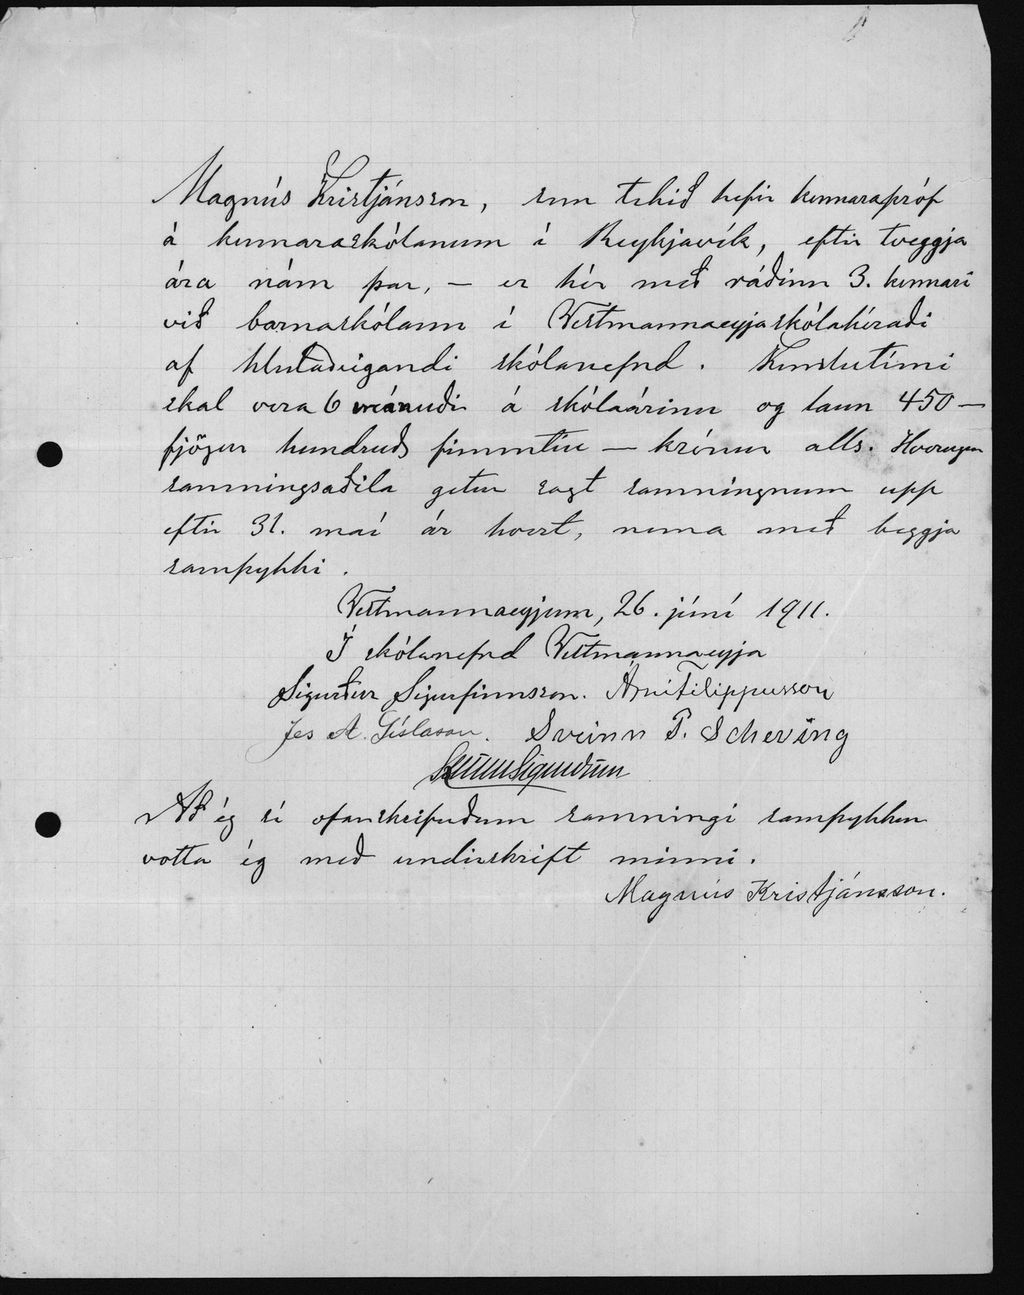 Magnús Kristjánsson, sem tekið hefir kennarapróf
á kennaraskólanum í Reykjavík, eftir tveggja
ára nám þar, – er hér með ráðinn 3. kennari
við barnaskólann í Vestmannaeyjaskólahéraði
af hlutaðeigandi skólanefnd. Kenslutími
skal vera 6 mánuði á skólaárinu og laun 450 –
fjögur hundruð fimmtíu – krónur alls. Hvorugur
samningsaðila getur sagt samningnum upp
eftir 31. maí ár hvert, nema með beggja
samþykki.
Vestmannaeyjum, 26. júní 1911.
Í skólanefnd Vestmannaeyja
Sigurður Sigurfinnsson. Árni Filippusson
Jes A. Gíslason. Sveinn P. Scheving
Að ég sé ofanskrifuðum samningi samþykkur
votta ég með undirskrift minni.
Magnús Kristjánsson.